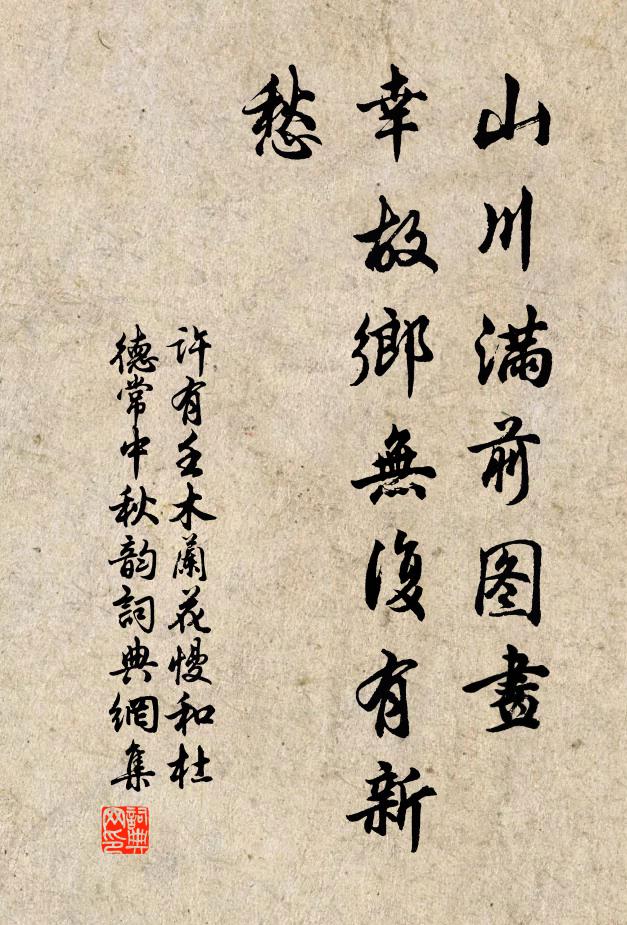 山川滿前图畫
幸故鄉無復有新
愁
许有壬木蘭花慢和杜
德常中秋韵詞典網集
詞典网印